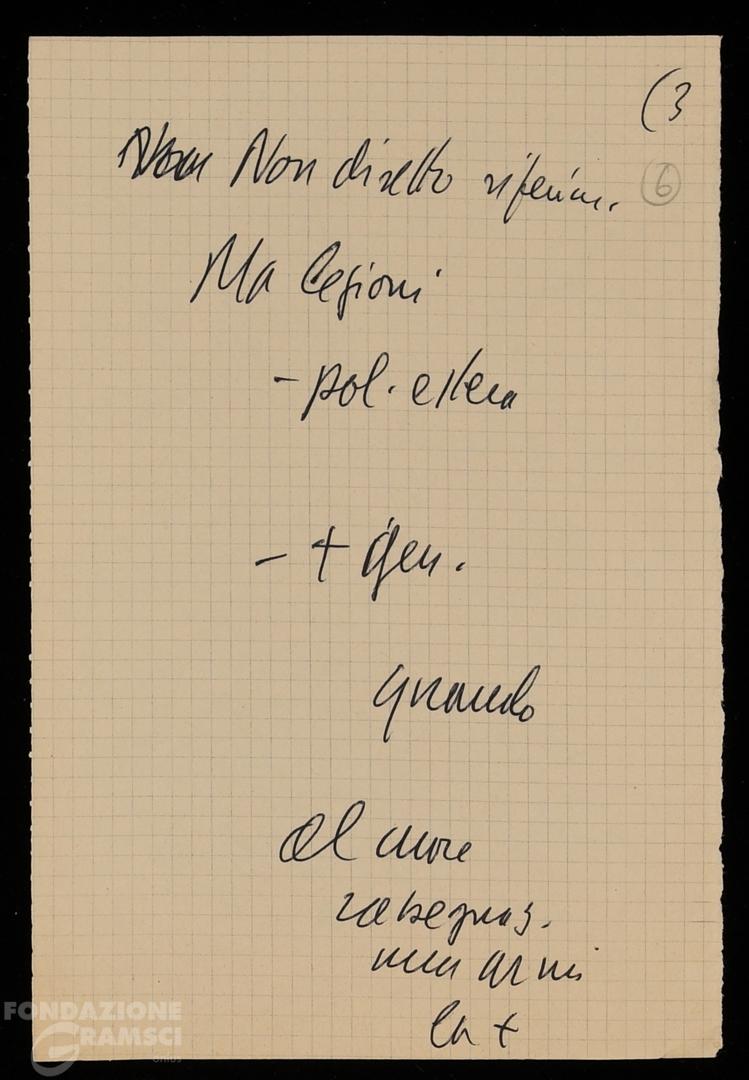 (3
6
Non diretto riferim.
Ma lezioni
- pol. estera
- + gen.
quando
al cuore
rassegnaz.
armi
la +
FONDAZIONE
GRAMSCI
onlus